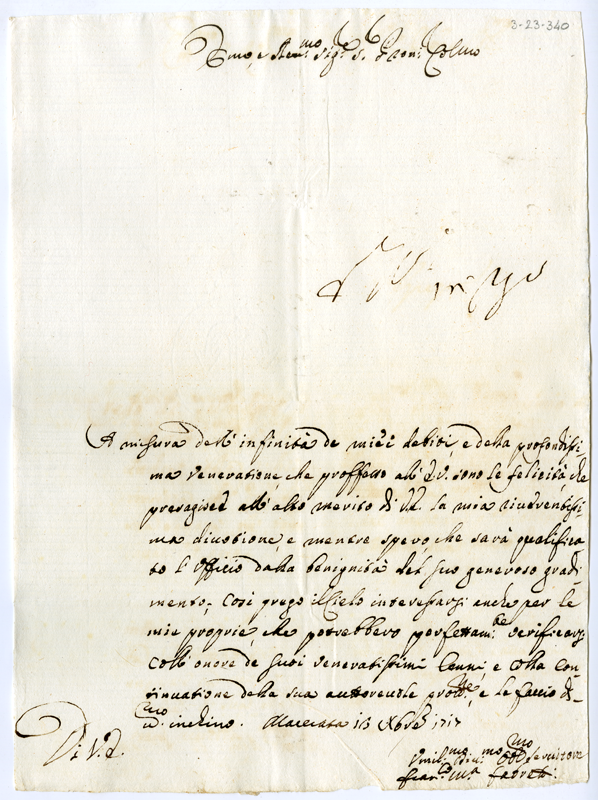 3-23-340
Emo, e Revmo Sigr. Sr. e Pron. Colmo
A misura dell' infinità de miei debiti, e della profondissi-
ma veneratione, che proffesso all' E.V. sono le felicità che
presagisce all' alto merito di V.E. la mia riverentissi-
ma divotione, e mentre spero, che sarà qualifica-
to l'Officio dalla benignità del suo generoso gradi-
mento, Così prego il Cielo interessarsi anche per le
mie proprie, che potrebbero perfettamte verificarsi
coll' onore de suoi veneratissimi Cenni, e colla con-
tinuatione della sua autorevole protne, e le faccio
inchino. Macerata 13 Xbre 1717
Di V. E.
Umilmo mo Obmo Servitore
Franco Ma